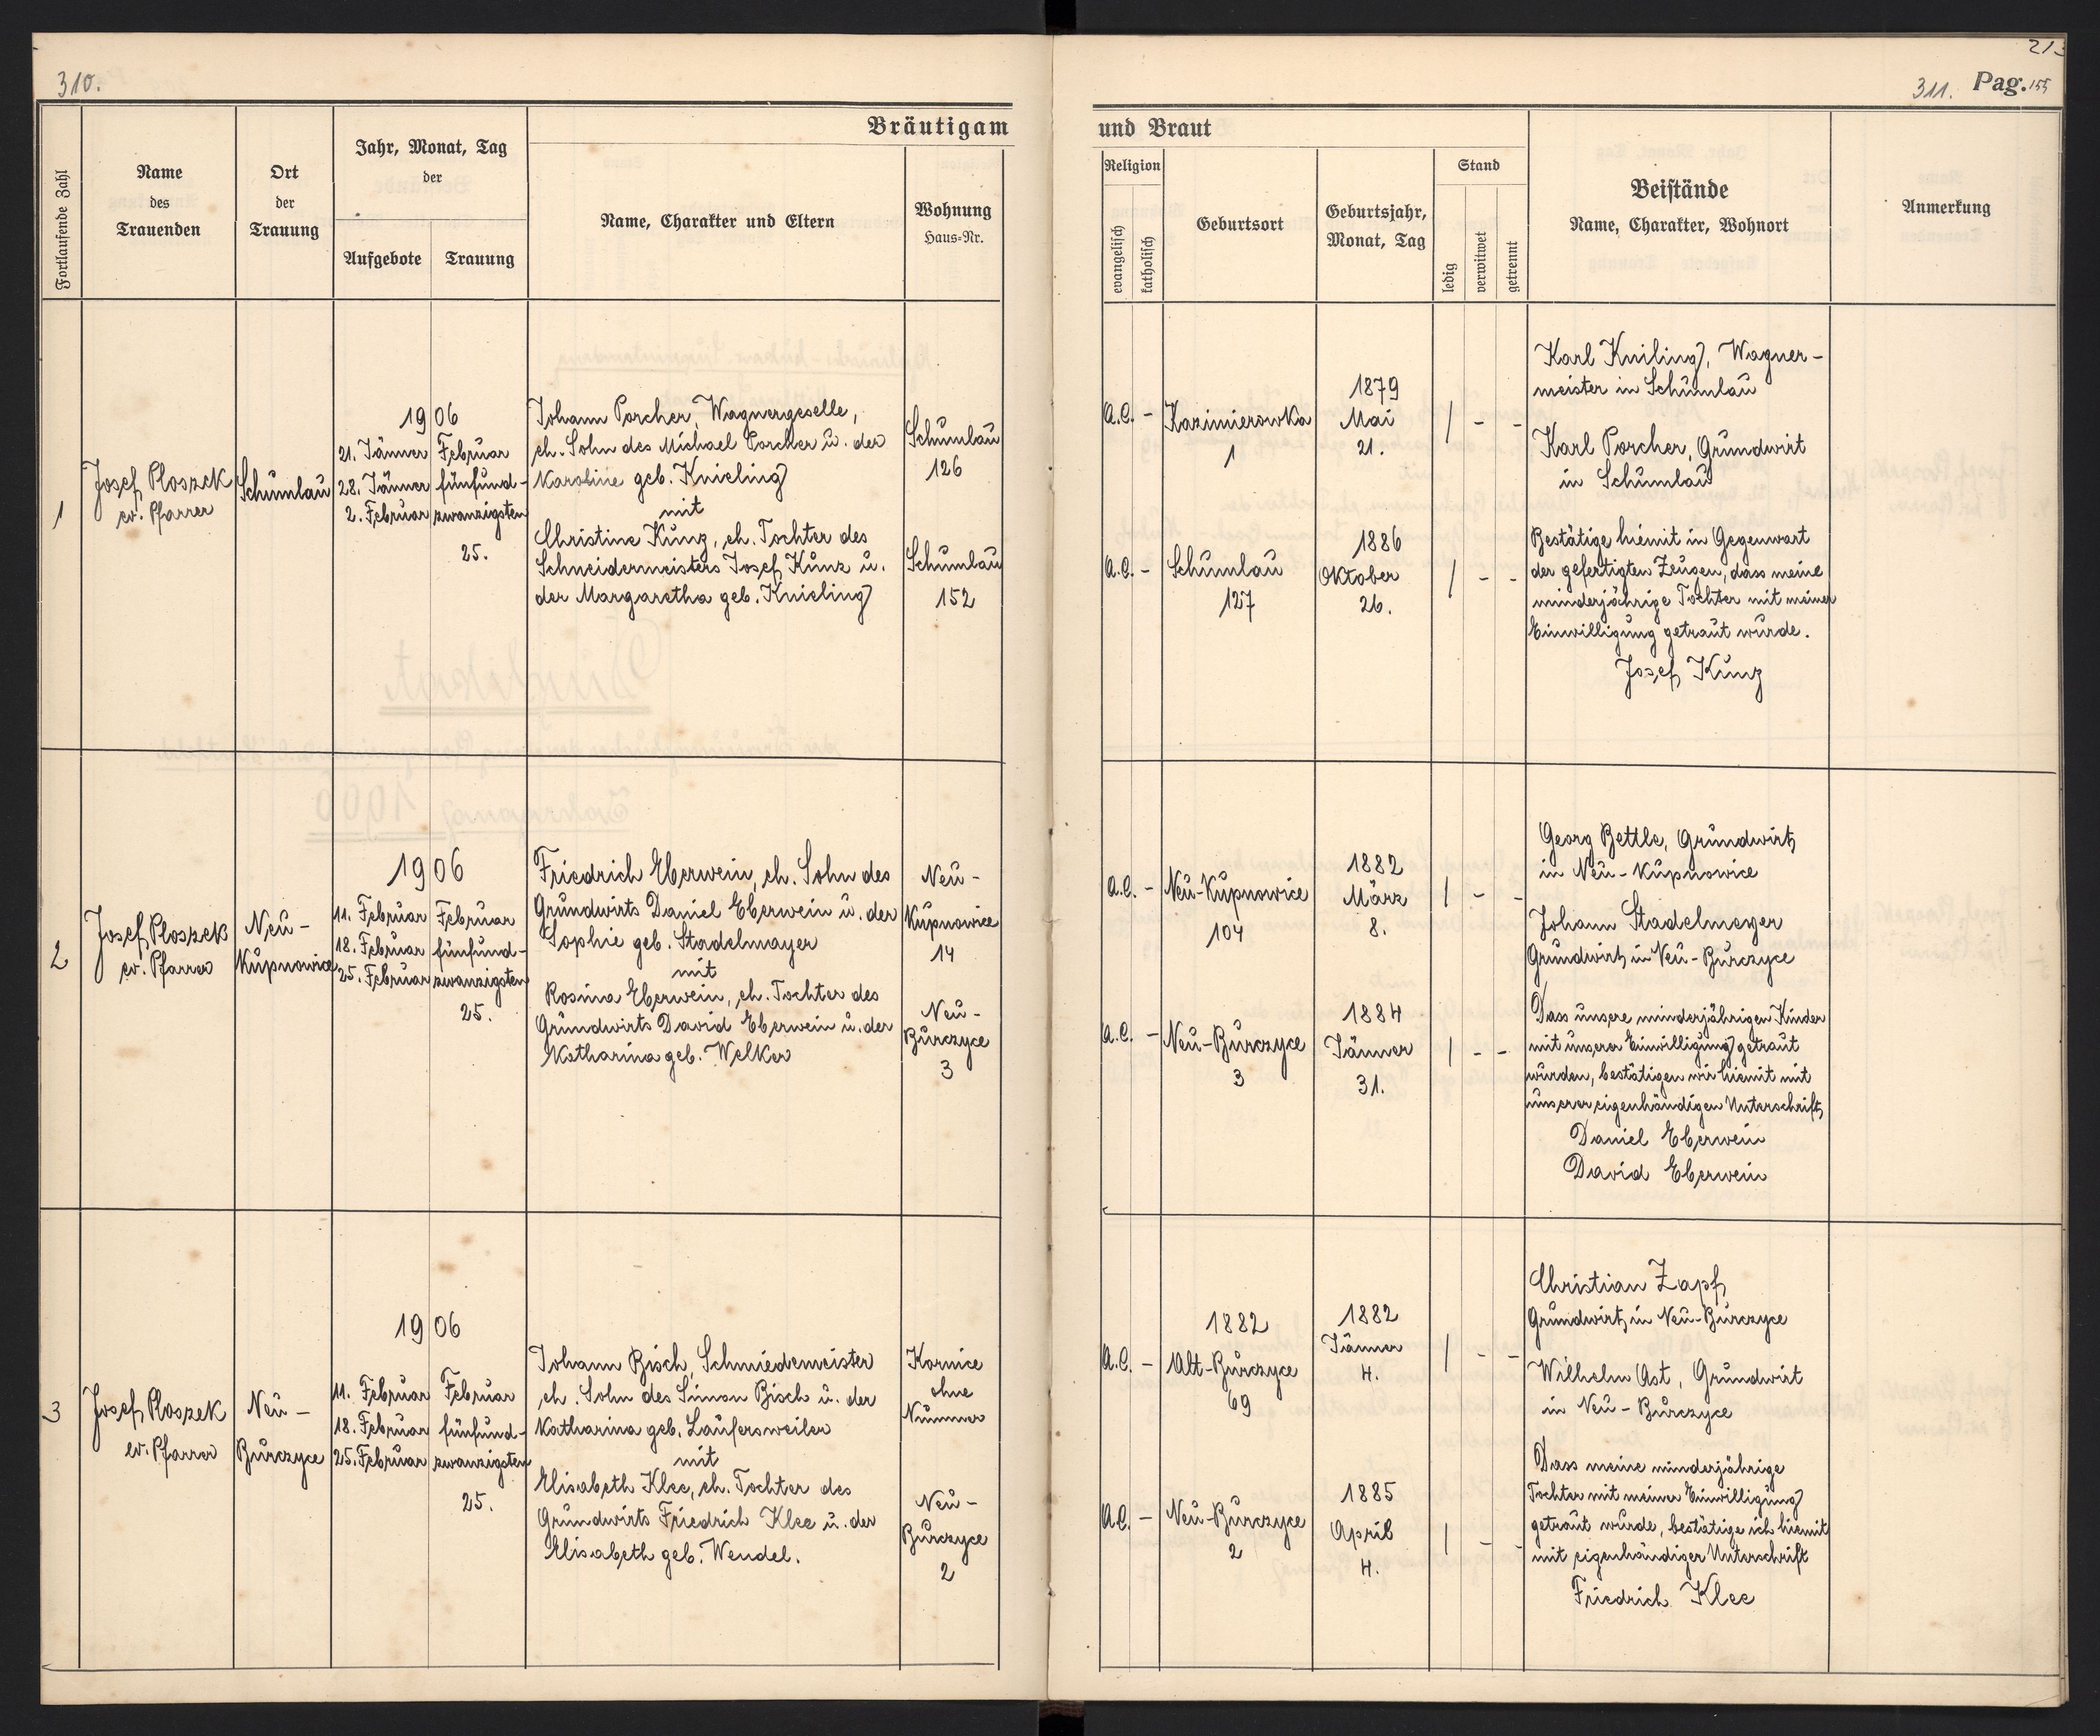 310.
213
311. Pag. 155
Bräutigam
und Braut
Fortlaufende Zahl
Name
des
Trauenden
Ort
der
Trauung
Jahr, Monat, Tag
der
Aufgebote
Trauung
Name, Charakter und Eltern
Wohnung
Haus-Nr.
Religion
evangelisch
katholisch
Geburtsort
Geburtsjahr,
Monat, Tag
Stand
ledig
verwitwet
getrennt
Beistände
Name, Charakter, Wohnort
Anmerkung
1
Josef Ploszek
ev. Pfarrer
Schumlau
1906
21. Jänner
28. Jänner
2. Februar
Februar
fünfund-
zwanzigsten
25.
Johann Porcher, Wagnergeselle,
eh. Sohn des Michael Porcher u. der
Karoline geb. Knieling
mit
Christine Kunz, eh. Tochter des
Schneidermeisters Josef Kunz u.
der Margaretha geb. Knieling
Schumlau
126
Schumlau
152
A.C. -
Kazimierowka
1
1879
Mai
21.
/ - -
A.C. -
Schumlau
127
1886
Oktober
26.
/ - -
Karl Kniling, Wagner-
meister in Schumlau
Karl Porcher, Grundwirt
in Schumlau
Bestätige hiemit in Gegenwart
der gefertigten Zeugen, dass meine
minderjährige Tochter mit meiner
Einwilligung getraut wurde.
Josef Kunz
2
Josef Ploszek
ev. Pfarrer
Neu-
Kupnowice
1906
11. Februar
18. Februar
25. Februar
Februar
fünfund-
zwanzigsten
25.
Friedrich Eberwein, eh. Sohn des
Grundwirts Daniel Eberwein u. der
Sophie geb. Stadelmayer
mit
Rosina Eberwein, eh. Tochter des
Grundwirts David Eberwein u. der
Katharina geb. Welker
Neu-
Kupnowice
14
Neu-
Burczyce
3
A.C. -
Neu-Kupnowice
104
1882
März
8.
/ - -
A.C. -
Neu-Burczyce
3
1884
Jänner
31.
/ - -
Georg Bettle, Grundwirt
in Neu-Kupnowice
Johann Stadelmayer
Grundwirt in Neu-Burczyce
Dass unsere minderjährigen Kinder
mit unserer Einwilligung getraut
wurden, bestätigen wir hiemit mit
unserer eigenhändigen Unterschrift
Daniel Eberwein
David Eberwein
3
Josef Ploszek
ev. Pfarrer
Neu-
Burczyce
1906
11. Februar
18. Februar
25. Februar
Februar
fünfund-
zwanzigsten
25.
Johann Bisch, Schmiedemeister
eh. Sohn des Simon Bisch u. der
Katharina geb. Laufersweiler
mit
Elisabeth Klee, eh. Tochter des
Grundwirts Friedrich Klee u. der
Elisabeth geb. Wendel.
Kornice
ohne
Nummer
Neu-
Burczyce
2
A.C. -
1882
Alt-Burczyce
69
1882
Jänner
4.
/ - -
A.C. -
Neu-Burczyce
2
1885
April
4.
/ - -
Christian Zapf
Grundwirt in Neu-Burczyce
Wilhelm Ast, Grundwirt
in Neu-Burczyce
Dass meine minderjährige
Tochter mit meiner Einwilligung
getraut wurde, bestätige ich hiemit
mit eigenhändiger Unterschrift
Friedrich Klee